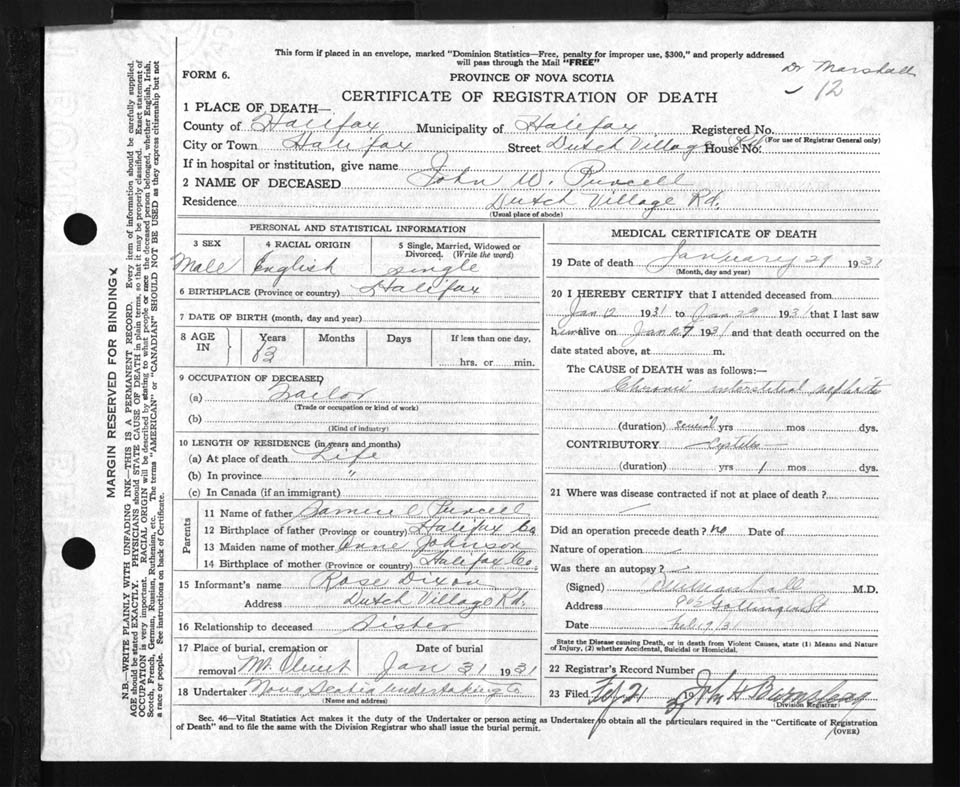 This form if placed in an envelope, marked "Dominion Statistics—Free, penalty for improper use, $300," and properly addressed
will pass through the Mail "FREE"
Dr Marshall
12
FORM 6.
PROVINCE OF NOVA SCOTIA
CERTIFICATE OF REGISTRATION OF DEATH
1 PLACE OF DEATH—
County of Halifax Municipality of Halifax Registered No.
(For use of Registrar General only)
City or Town Halifax Street Dutch Village Rd House No.
If in hospital or institution, give name
2 NAME OF DECEASED John W. Purcell
Residence Dutch Village Rd.
(Usual place of abode)
PERSONAL AND STATISTICAL INFORMATION
3 SEX 4 RACIAL ORIGIN 5 Single, Married, Widowed or Divorced. (Write the word)
Male English single
6 BIRTHPLACE (Province or country) Halifax
7 DATE OF BIRTH (month, day and year)
8 AGE IN Years Months Days If less than one day,
hrs. or min.
9 OCCUPATION OF DECEASED
(a)
(Trade or occupation or kind of work)
(b)
(Kind of industry)
10 LENGTH OF RESIDENCE (in years and months)
(a) At place of death Life
(b) In province "
(c) In Canada (if an immigrant)
Parents
11 Name of father Purcell
12 Birthplace of father (Province or country) Halifax Co
13 Maiden name of mother Anne Johnson
14 Birthplace of mother (Province or country) Halifax Co.
15 Informant's name Rose Dixon
Address Dutch Village Rd.
16 Relationship to deceased Sister
17 Place of burial, cremation or removal Mt. Olivet Date of burial Jan 31 1931
18 Undertaker Nova Scotia Undertaking Co
(Name and address)
MEDICAL CERTIFICATE OF DEATH
19 Date of death January 29 1931
(Month, day and year)
20 I HEREBY CERTIFY that I attended deceased from
Jan 12 1931 to Jan 29 1931 that I last saw
him alive on Jan 27 1931 and that death occurred on the
date stated above, at m.
The CAUSE OF DEATH was as follows:—
Chronic interstitial nephritis
(duration) several yrs mos dys.
CONTRIBUTORY Cystitis
(duration) yrs 1 mos. dys.
21 Where was disease contracted if not at place of death?
Did an operation precede death? no Date of
Nature of operation
Was there an autopsy?
(Signed) M.D.
Address
Date Feb 19/31
State the Disease causing Death, or in death from Violent Causes, state (1) Means and Nature
of Injury, (2) whether Accidental, Suicidal or Homicidal.
22 Registrar's Record Number
23 Filed Feb 21 19 John H Burns
(Division Registrar)
Sec. 46—Vital Statistics Act makes it the duty of the Undertaker or person acting as Undertaker to obtain all the particulars required in the "Certificate of Registration
of Death" and to file the same with the Division Registrar who shall issue the burial permit.
(OVER)
MARGIN RESERVED FOR BINDING
N.B.—WRITE PLAINLY WITH UNFADING INK—THIS IS A PERMANENT RECORD. Every item of information should be carefully supplied.
AGE should be stated EXACTLY. PHYSICIANS should STATE CAUSE OF DEATH in plain terms, so that it may be properly classified. Exact statement of
OCCUPATION is very important. RACIAL ORIGIN will be described by stating to what people or race the deceased person belonged, whether English, Irish,
Scotch, French, German, Russian, Ruthenian, etc. The terms "AMERICAN" or "CANADIAN" SHOULD NOT BE USED as they express citizenship but not
a race or people. See instructions on back of Certificate.